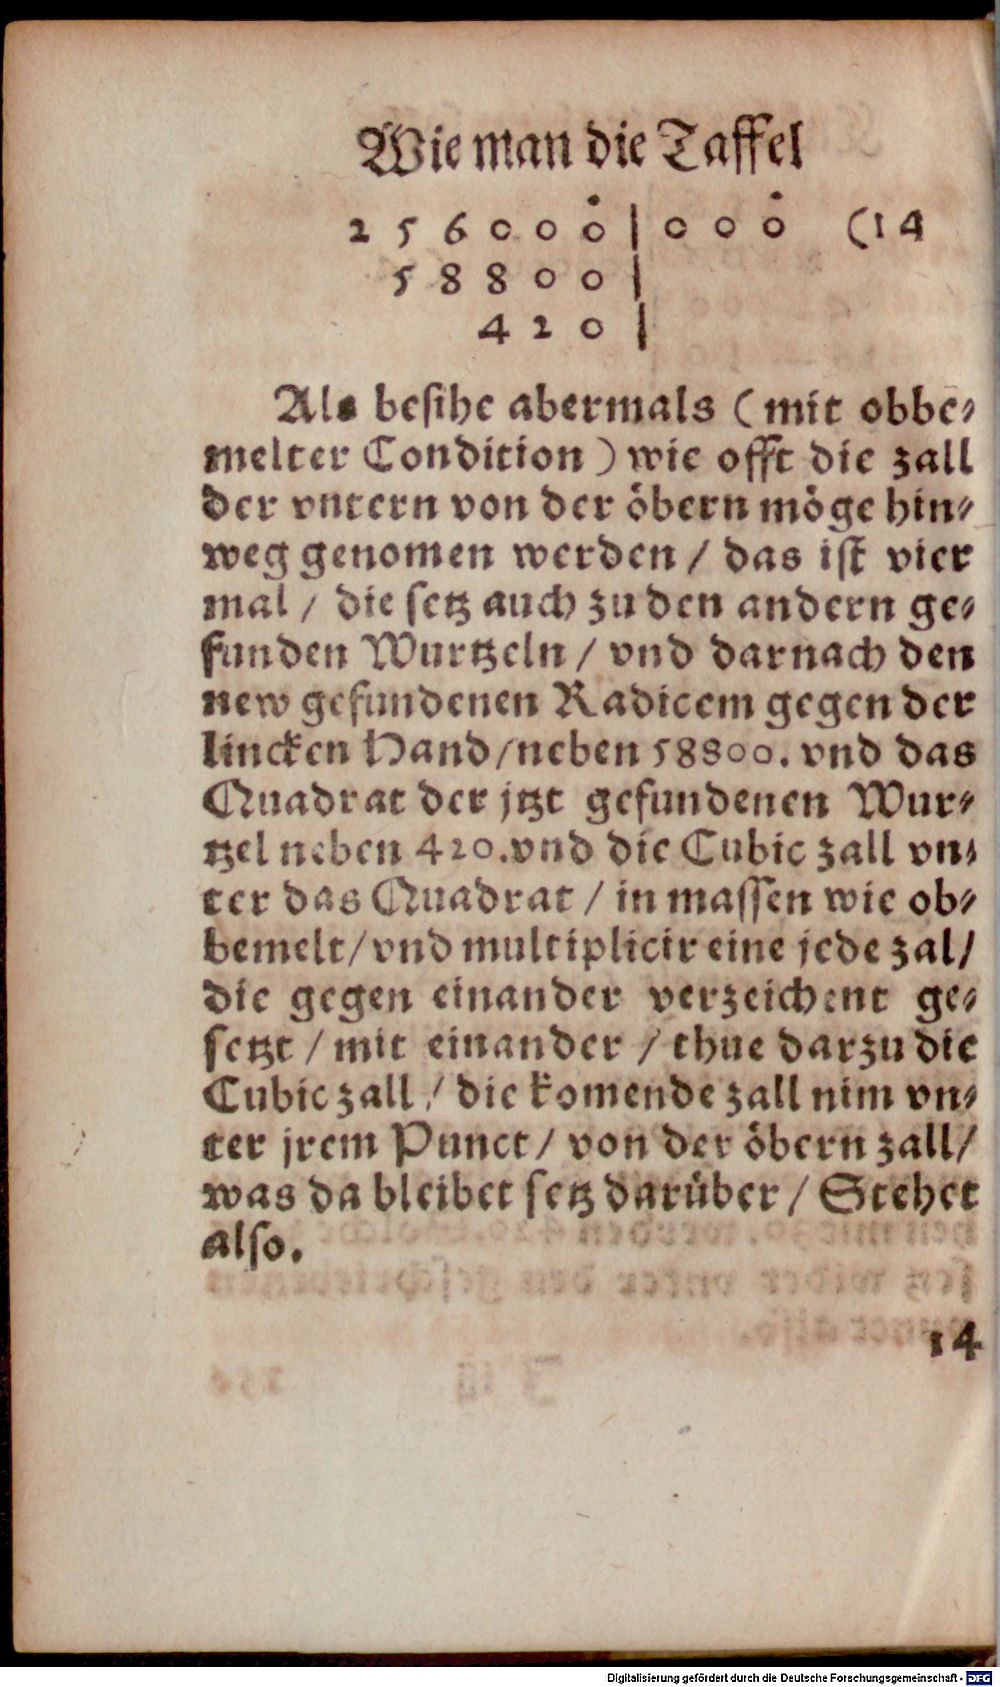 Wie man die Taffel
2 5 6 0 0 0 | 0 0 0 (14
5 8 8 0 0 |
4 2 0 |
Als besihe abermals (mit obbe⸗
melter Condition) wie offt die zall
der vntern von der öbern möge hin⸗
weg genomen werden / das ist vier
mal / die setz auch zu den andern ge⸗
funden Wurtzeln / vnd darnach den
new gefundenen Radicem gegen der
lincken Hand/neben 58800. vnd das
Quadrat der jtzt gefundenen Wur⸗
tzel neben 420.vnd die Cubic zall vn⸗
ter das Quadrat / in massen wie ob⸗
bemelt/vnd multiplicir eine jede zal/
die gegen einander verzeichent ge⸗
setzt / mit einander / thue darzu die
Cubic zall / die komende zall nim vn⸗
ter jrem Punct / von der öbern zall/
was da bleibet setz darüber / Stehet
also.
14
Digitalisierung gefördert durch die Deutsche Forschungsgemeinschaft - DFG